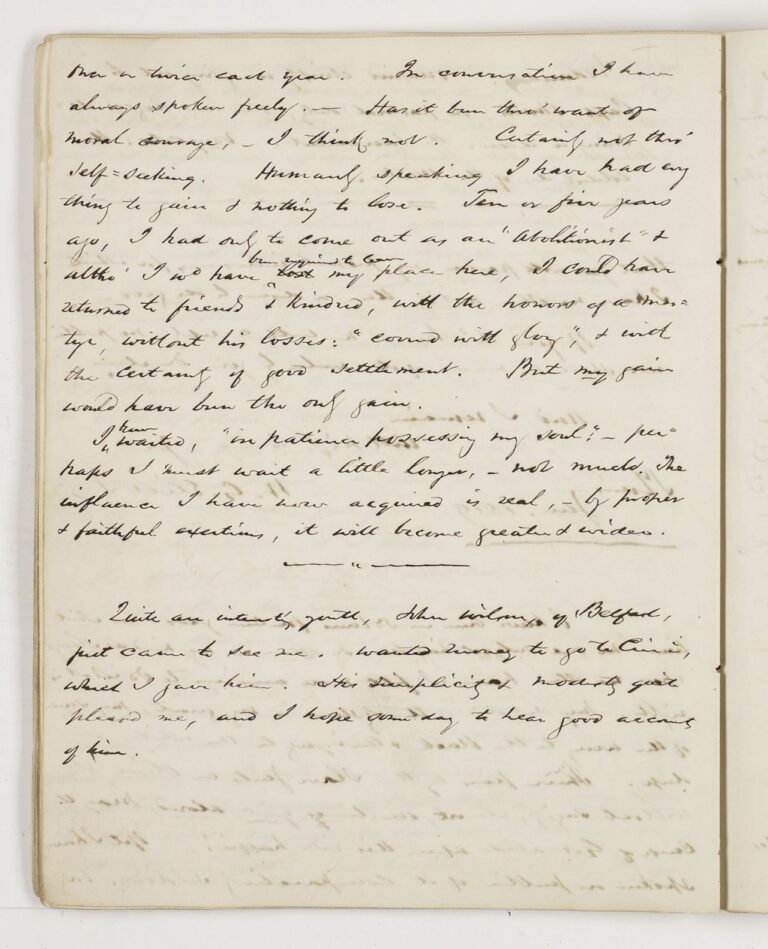 once or twice each year. In conversation I have
always spoken freely. — Has it been thro' want of
moral courage, – I think not. Certainly not thro'
self=seeking. Humanly speaking I have had every
thing to gain & nothing to lose. Ten or five years
ago, I had only to come out as an "Abolitionist" &
altho' I wd have been required to leave lost my place here, I could have
returned to friends & kindred, with the honors of a mar=
tyr, without his losses: "covered with glory", & with
the certainty of good settlement. But my gain
would have been the only gain.
I have waited, "in patience possessing my soul": – per=
haps I must wait a little longer, – not much. The
influence I have now acquired is real, – by proper
& faithful exertions, it will become greater & wider.
Quite an interestg youth, John Wilson, of Belfast,
just came to see me. wanted money to go to Cinci,
which I gave him. His simplicity & modesty quite
pleased me, and I hope some day to hear good accounts
of him.